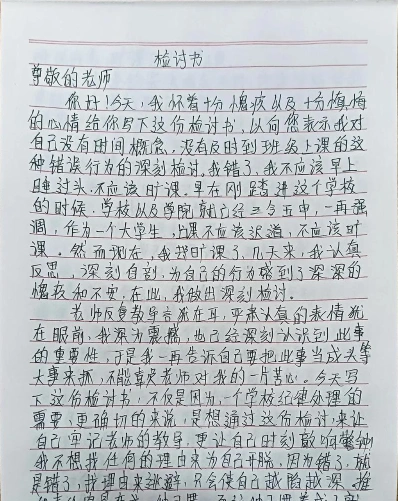 检讨书
尊敬的老师
你好!今天,我怀着十分愧疚以及十分懊悔
的心情给你写下这份检讨书,以向您表示我对
自己没有时间概念,没有及时到班级上课的这
种错误行为的深刻检讨。我错了,我不应该早上
睡过头,不应该旷课。早在刚踏进这个学校
的时候,学校以及学院就已经三令五申,一再强
调,作为一个大学生,上课不应该迟到,不应该旷
课。然而现在,我却旷课了。几天来,我认真
反思,深刻自剖,为自己的行为感到了深深的
愧疚和不安,在此,我做出深刻检讨。
老师反复教导言犹在耳,严肃认真的表情犹
在眼前,我深为震撼,也已经深刻认识到此事
的重要性,于是我一再告诉自己要把此事当成头等
大事来抓,不能辜负老师对我的一片苦心。今天写
下这份检讨书,不仅是因为一个学校纪律处理的
需要,更确切的来说,是想通过这份检讨,来让
自己牢记老师的教导,更让自己时刻敲响警钟
我不想找任何的理由来为自己开脱,因为错了,就
是错了,找理由来逃避,只会使自己越陷越深。推